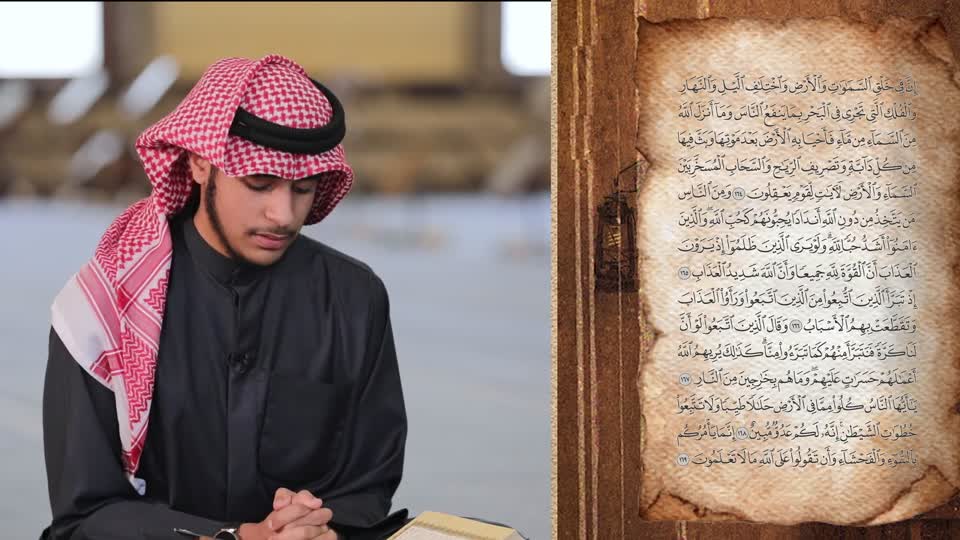 إِنَّ فِي خَلْقِ السَّمَٰوَٰتِ وَالْأَرْضِ وَاخْتِلَٰفِ الَّيْلِ وَالنَّهَارِ
وَالْفُلْكِ الَّتِي تَجْرِي فِي الْبَحْرِ بِمَا يَنفَعُ النَّاسَ وَمَا أَنزَلَ اللَّهُ
مِنَ السَّمَاءِ مِن مَّاءٍ فَأَحْيَا بِهِ الْأَرْضَ بَعْدَ مَوْتِهَا وَبَثَّ فِيهَا
مِن كُلِّ دَابَّةٍ وَتَصْرِيفِ الرِّيَٰحِ وَالسَّحَابِ الْمُسَخَّرِ بَيْنَ
السَّمَاءِ وَالْأَرْضِ لَءَايَٰتٍ لِّقَوْمٍ يَعْقِلُونَ ١٦٤ وَمِنَ النَّاسِ
مَن يَتَّخِذُ مِن دُونِ اللَّهِ أَندَادًا يُحِبُّونَهُمْ كَحُبِّ اللَّهِ وَالَّذِينَ
ءَامَنُوا أَشَدُّ حُبًّا لِّلَّهِ وَلَوْ يَرَى الَّذِينَ ظَلَمُوا إِذْ يَرَوْنَ
الْعَذَابَ أَنَّ الْقُوَّةَ لِلَّهِ جَمِيعًا وَأَنَّ اللَّهَ شَدِيدُ الْعَذَابِ ١٦٥
إِذْ تَبَرَّأَ الَّذِينَ اتُّبِعُوا مِنَ الَّذِينَ اتَّبَعُوا وَرَأَوُا الْعَذَابَ
وَتَقَطَّعَتْ بِهِمُ الْأَسْبَابُ ١٦٦ وَقَالَ الَّذِينَ اتَّبَعُوا لَوْ أَنَّ
لَنَا كَرَّةً فَنَتَبَرَّأَ مِنْهُمْ كَمَا تَبَرَّءُوا مِنَّا كَذَٰلِكَ يُرِيهِمُ اللَّهُ
أَعْمَٰلَهُمْ حَسَرَٰتٍ عَلَيْهِمْ وَمَا هُم بِخَٰرِجِينَ مِنَ النَّارِ ١٦٧
يَٰأَيُّهَا النَّاسُ كُلُوا مِمَّا فِي الْأَرْضِ حَلَٰلًا طَيِّبًا وَلَا تَتَّبِعُوا
خُطُوَٰتِ الشَّيْطَٰنِ إِنَّهُ لَكُمْ عَدُوٌّ مُّبِينٌ ١٦٨ إِنَّمَا يَأْمُرُكُم
بِالسُّوءِ وَالْفَحْشَاءِ وَأَن تَقُولُوا عَلَى اللَّهِ مَا لَا تَعْلَمُونَ ١٦٩